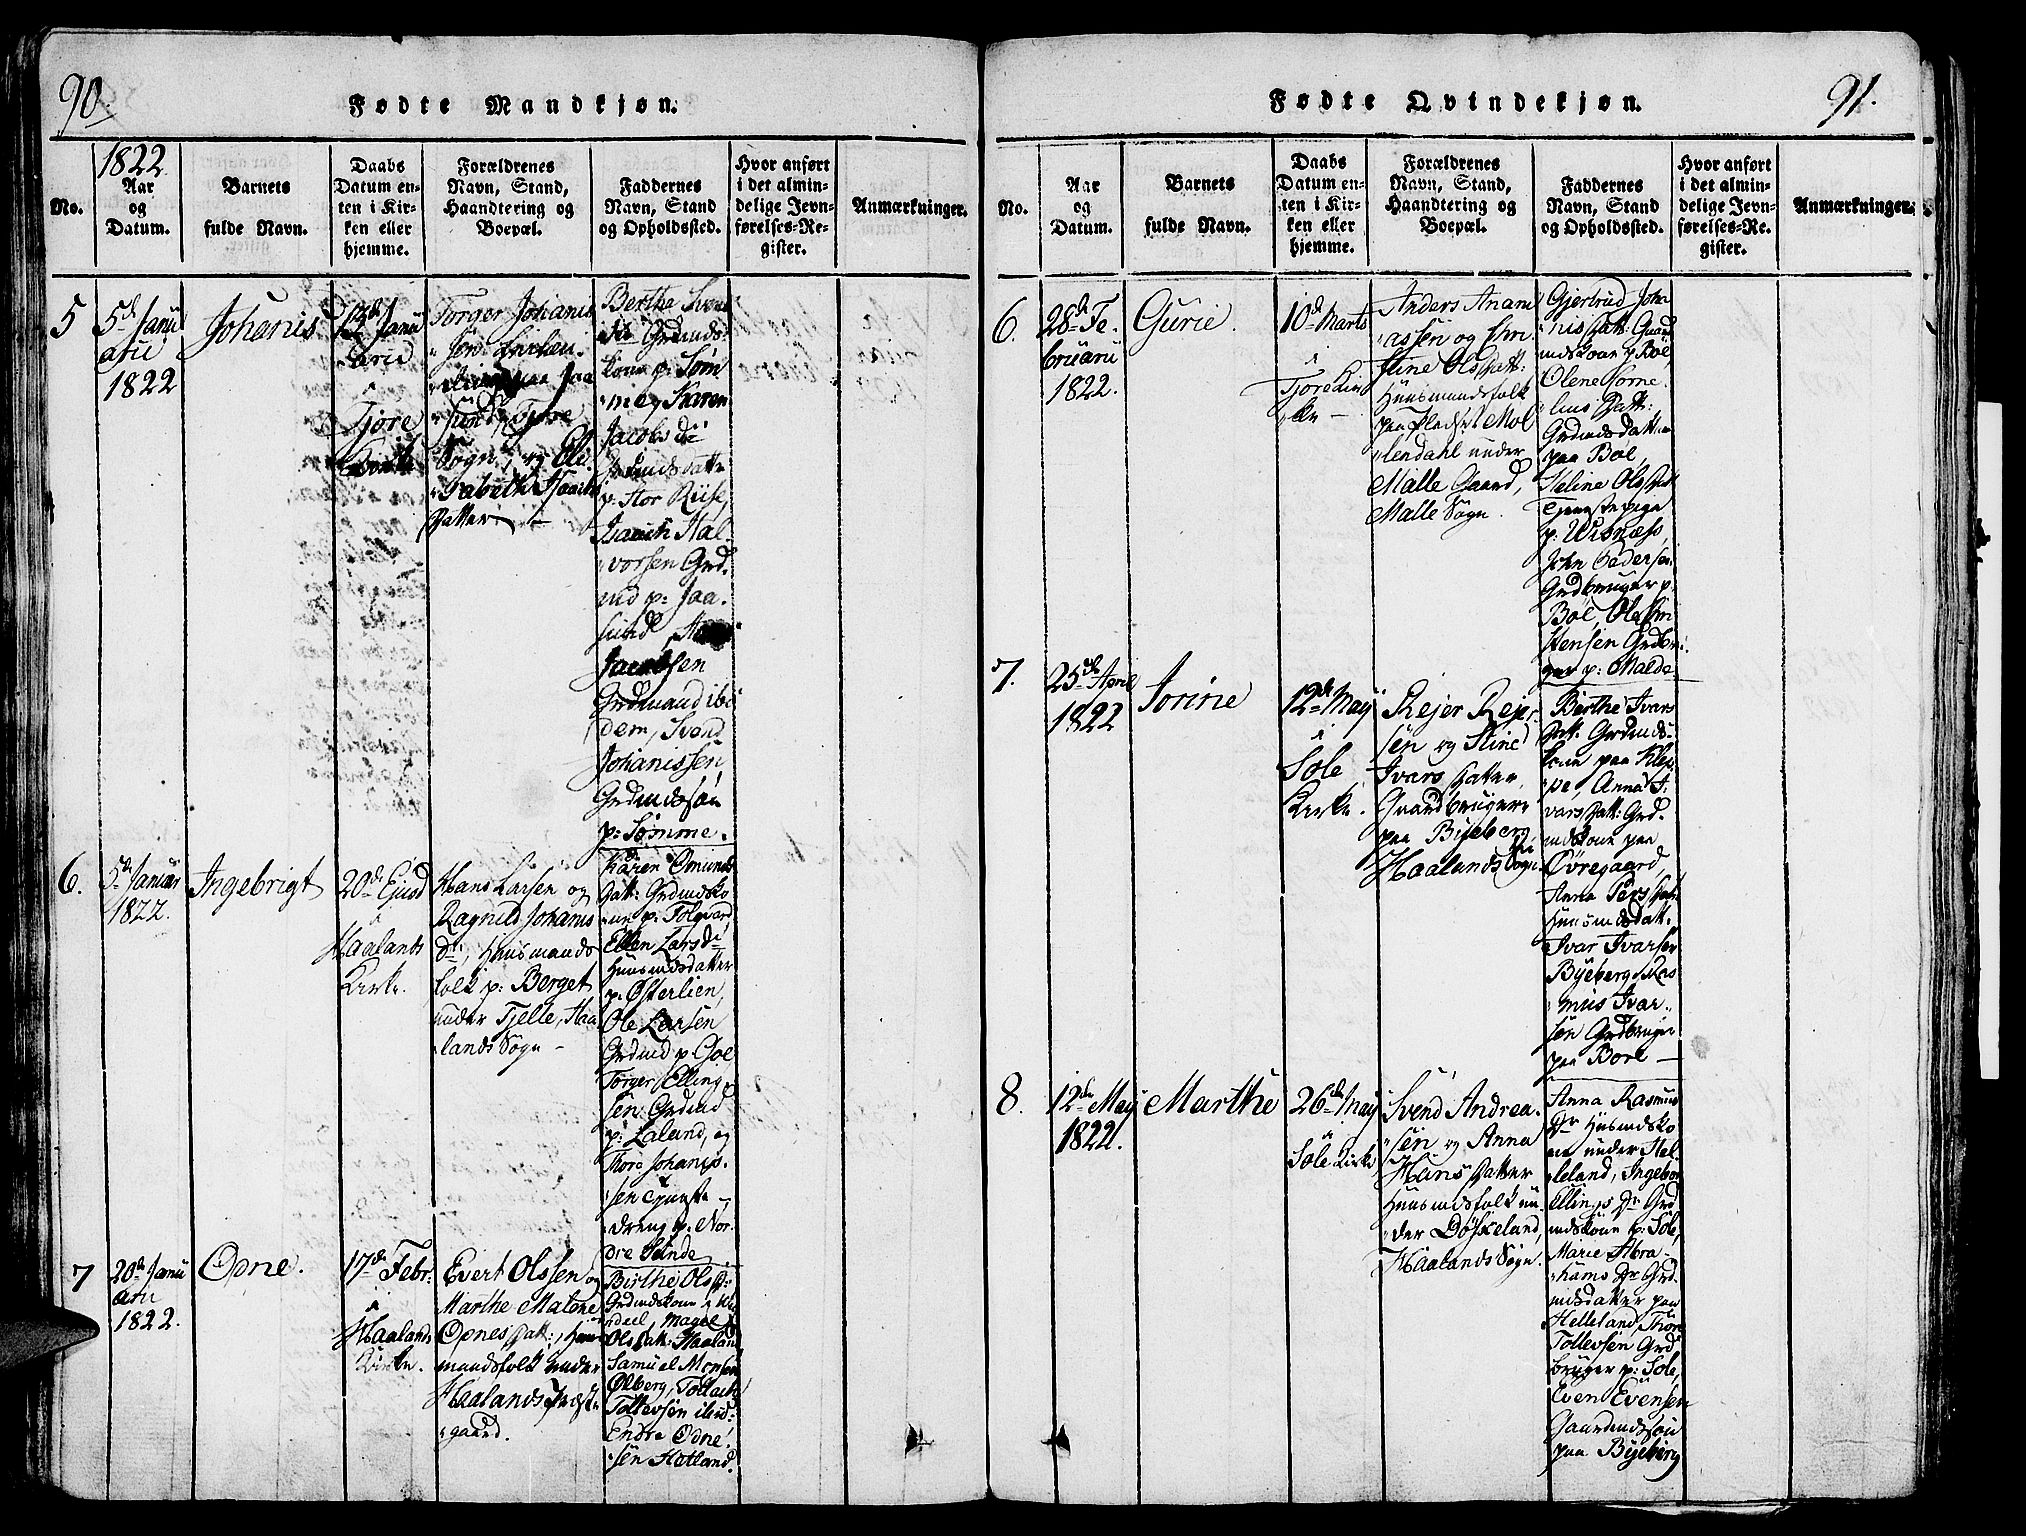 90.
Fødte Mandkjøn.
1822
No.
Aar
og
Datum.
Barnets
fulde Navn.
Daabs
Datum en-
ten i Kir-
ken eller
hjemme.
Forældrenes
Navn, Stand,
Haandtering og
Boepæl.
Faddernes
Navn, Stand
og Opholdssted.
Hvor anført
i det almin-
delige Jevn-
førelses-Re-
gister.
Anmærkninger.
5
5de Janu
arii
1822
Johanis
Janu
arii
i
Tjore
Torger Johanis
paa Jaa
sund, Tjore
Sogn, og Eli
sabeth
Datter
Berthe
Grdmds-
kone p: Søm
me, Karen
Jacobs
Grdmdsdatter
p: Stor Riise,
Hal-
vorsen Grd
md p: Jaa
sund
Jacobsen
Grdmand ibi
dem, Svend
Johanissen
Grdmdssøn
p: Sømme.
6.
5te Januar
1822.
Ingebrigt
20de Ejusd
i
Haalands
Kirke.
Hans Larsen og
Ragnild Johanis
Dr, Huusmands
folk p: Berget
under Tjelle, Haa
lands Sogn
Karen Omunds
Datt: Grdmdsko
ne p: Folqvard
Ellen Larsd
Huusmdsdatter
p: Østerlien,
Ole Larsen
Grdmd p: Goe
Torger Elling
sen Grdmd
p: Laland, og
Thore Johanis.
sen Tjeneste
dreng p: Nor
dre Sunde
7
20de Janu
arii
1822.
Odne.
17de Febr:
i
Haalands
Kirke.
Evert Olssen og
Marthe Malone
Odnes Datt:, Huus
mandsfolk under
Haalands Præste
gaard.
Birthe Ols D:
Grdmdskone
Ols Datt: Haaland
Samuel Monsen
Ølberg, Tollach
Tollevsen ibid:
Endre Odne
sen Hotland.
91.
Fødte Qvindekjøn.
No.
Aar
og
Datum.
Barnets
fulde Navn.
Daabs
Datum en-
ten i Kir-
ken eller
hjemme.
Forældrenes
Navn, Stand,
Haandtering og
Boepæl.
Faddernes
Navn, Stand
og Opholdssted.
Hvor anført
i det almin-
delige Jevn-
førelses-Re-
gister.
Anmærkninger.
6.
28de Fe
bruarii
1822.
Gurie.
10de Marts
i
Tjore Kir
ke
Anders Anani
assen og Chri
stine Ols Datt:
Huusmandsfolk
paa Pladset Mol
lendahl under
Malle Gaard,
Malle Sogn.
Gjertrud Joha
nis Datt: Gaard
mdskone p: Røl,
Olene Corne
lius Datt:
Grdmdsdatter
paa Bøe,
Heline Ols Datt
Tjenestepige
p: Wisnæss,
John Pedersen
Grdbruger p:
Bøe, Ole Chri
stensen Grdbru
ger p: Malde
7.
25de April
1822
Jorine
12te May
i
Sole
Kirke.
Rejer Rejer
sen og Stine
Ivars Datter
Gaardbrugere
paa Byeberg
Haalands Sogn
Berthe Ivars
Datt: Grdmds-
kone paa Klep
pe, Anna I-
vars Datt: Grd
mdskone paa
Øvregaard,
Anna Pers Datt
Huusmdsdatt.
Ivar Ivarsen
Byeberg, Ras
mus Ivar-
sen Grdbruger
paa Bore
8.
12te May
1822.
Marthe
26de May
i
Sole Kirke
Svend Andrea-
sen og Anna
Hans Datter
Huusmdsfolk un
der Døskeland,
Haalands Sogn.
Anna Rasmus
Dr Husmdsko
ne under Hel
leland, Ingebor
Ellings Dr Grd
mdskone p: Sole,
Marie Abra-
hams Dr Grd
mdsdatter paa
Helleland, Thore
Tollevsen Grd
bruger p: Sole,
Even Evensen
Gaardmdssøn
paa Byeberg